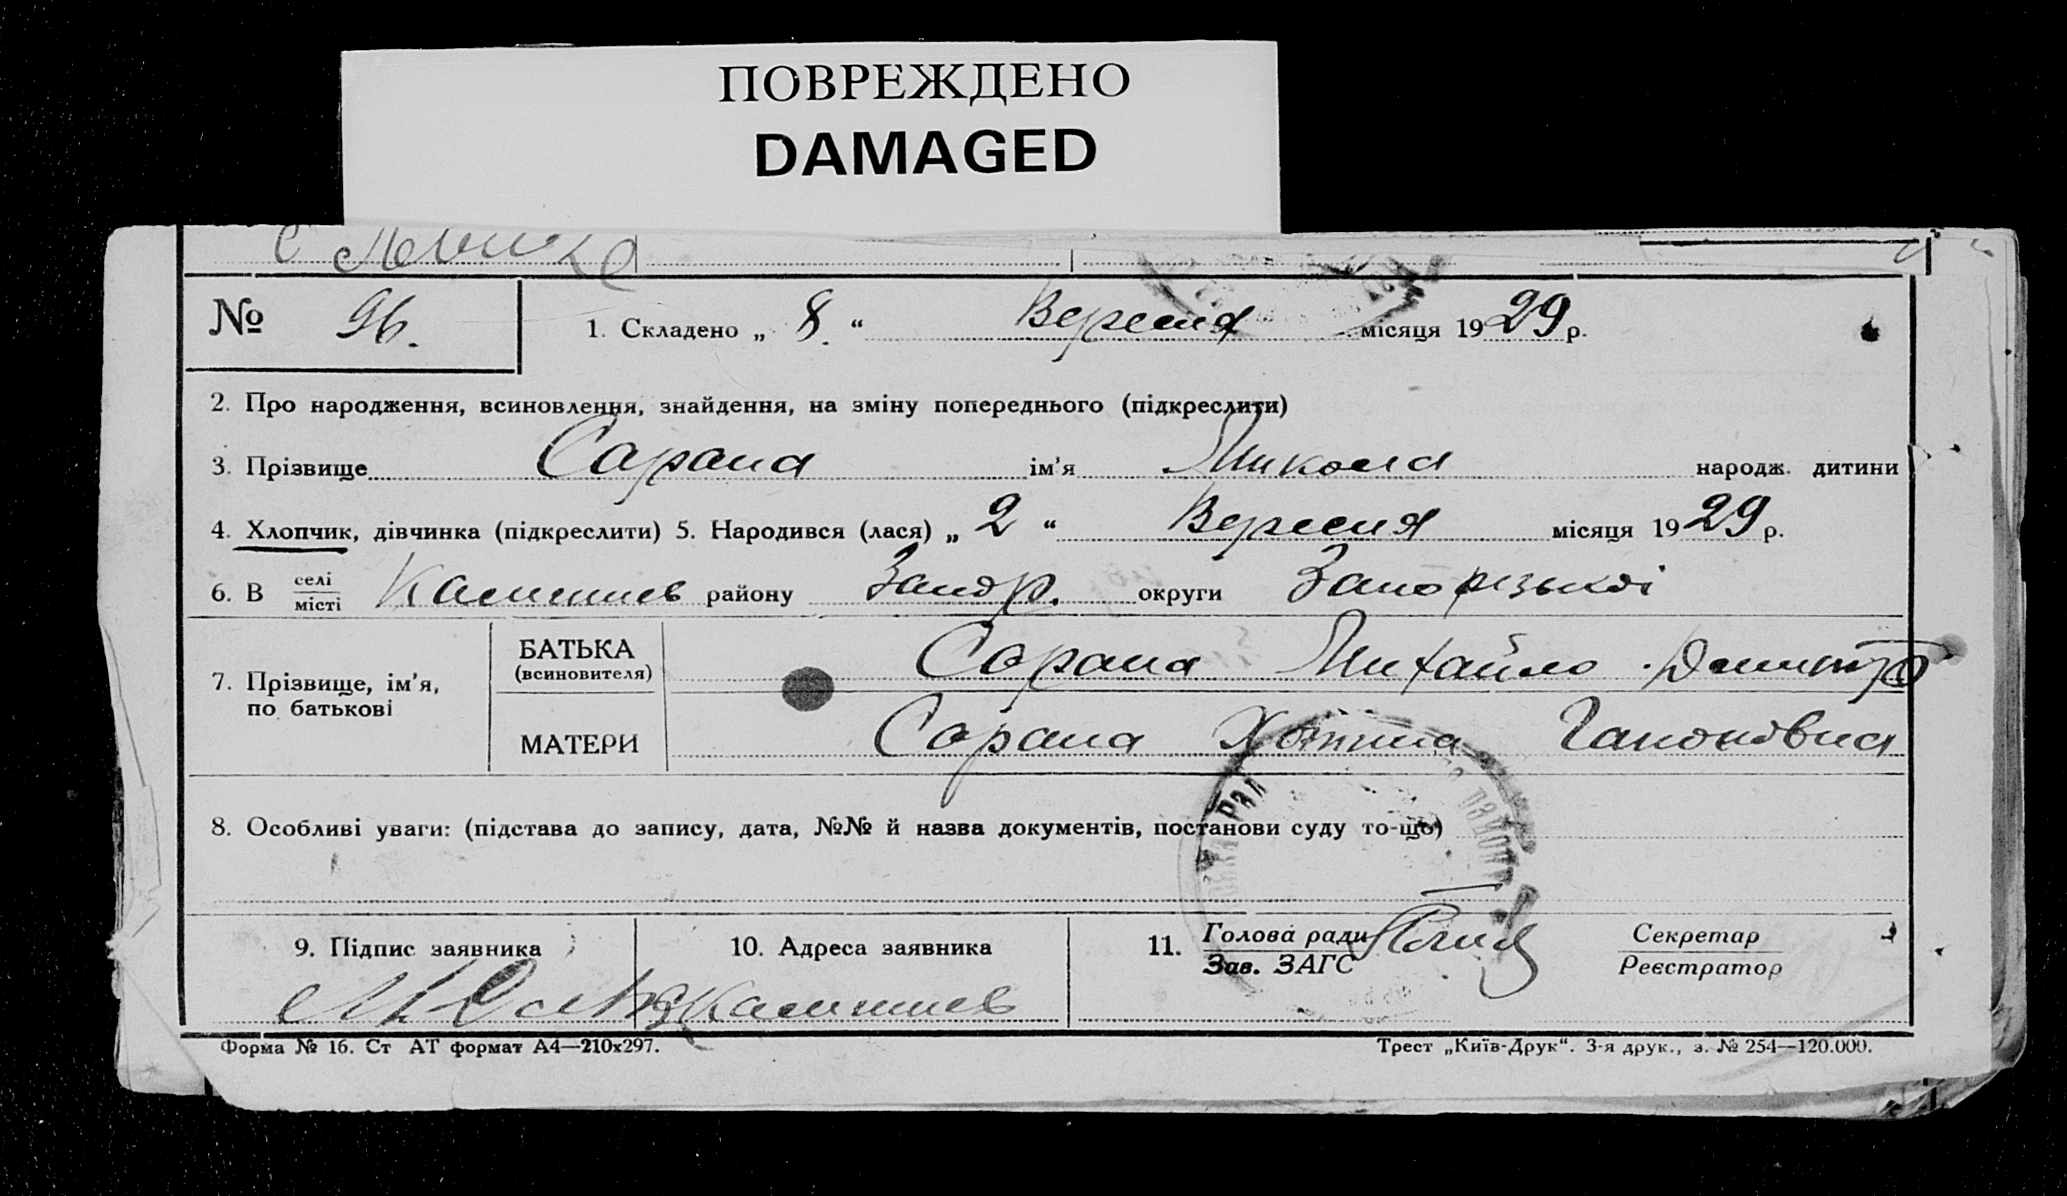 ПОВРЕЖДЕНО
DAMAGED
№ 96. 1. Складено „ 8 “ Вересня місяця 1929 р.
2. Про народження, всиновлення, знайдення, на зміну попереднього (підкреслити)
3. Прізвище Сарана ім'я Микола народж. дитини
4. Хлопчик, дівчинка (підкреслити) 5. Народився (лася) „ 2 “ Вересня місяця 1929 р.
6. В селі/місті району округи Запорізької
7. Прізвище, ім'я, по батькові
БАТЬКА (всиновителя) Сарана Михайло
МАТЕРИ Сарана
8. Особливі уваги: (підстава до запису, дата, №№ й назва документів, постанови суду то-що)
9. Підпис заявника 10. Адреса заявника 11. Голова ради Секретар
Зав. ЗАГС Реєстратор
Форма № 16. Ст АТ формат А4—210х297. Трест „Київ-Друк“. 3-я друк., з. № 254—120.000.